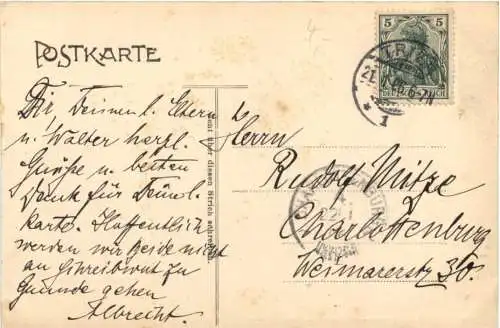 4,-
POSTKARTE
5
5
DEUTSCHES REICH
TRIER
* 1
Dir, Deinen l. Eltern
u. Walter herzl.
Grüße u. besten
Dank für Deine l.
Karte. Hoffentlich
werden wir beide nicht
an Schreibwut zu
Grunde gehen
Albrecht.
Nicht über diesen Strich schreiben.
Herrn
Rudolf Mitze
Charlottenburg
Weimarerstr 30.
CHARLOTTENBURG